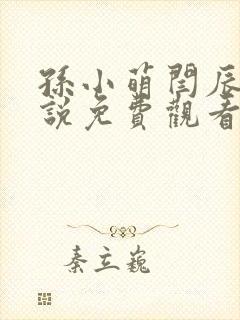 孫小萌閆辰
說免費觀看
秦立巍